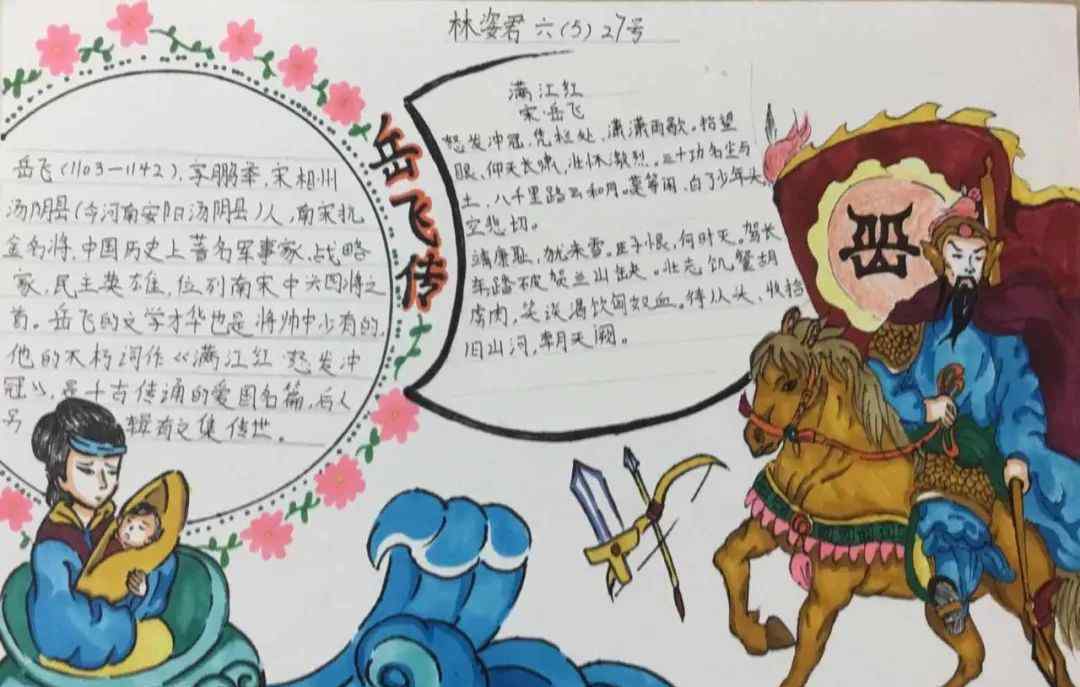 林姿君 六(5) 27号
岳飞传
岳飞(1103—1142),字鹏举,宋相州
汤阴县(今河南安阳汤阴县)人,南宋抗
金名将,中国历史上著名军事家、战略
家,民主英雄,位列南宋中兴四将之
首。岳飞的文学才华也是将帅中少有的,
他的不朽词作《满江红·怒发冲
冠》,是千古传诵的爱国名篇,后人
辑有文集传世。
满江红
宋·岳飞
怒发冲冠,凭栏处、潇潇雨歇。抬望
眼、仰天长啸,壮怀激烈。三十功名尘与
土,八千里路云和月。莫等闲、白了少年头,
空悲切。
靖康耻,犹未雪。臣子恨,何时灭。驾长
车踏破贺兰山缺。壮志饥餐胡
虏肉,笑谈渴饮匈奴血。待从头、收拾
旧山河,朝天阙。
岳